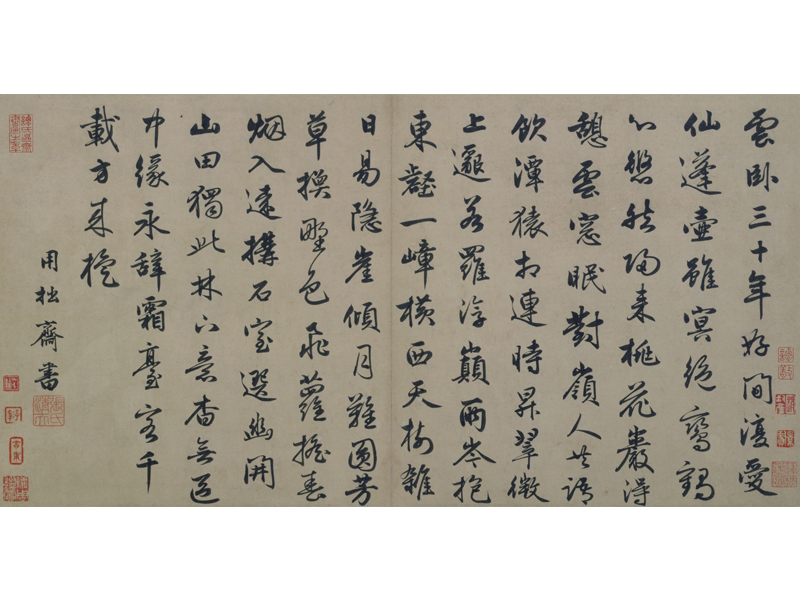 雲卧三十年好閒復愛
仙蓬壺雖冥絕鸞鶴
心悠然歸来桃花巖得
憩雲窓眠對嶺人共語
飲潭猿相連時昇翠微
上邈若羅浮巔兩岑抱
東壑一嶂横西天樹雜
日易隐崖傾月難圓芳
草換野色飛蘿搖春
烟入遠搆石室選幽開
山田獨此林下意杳無區
中緣永辭霜臺客千
載方来旋
用拙齋書